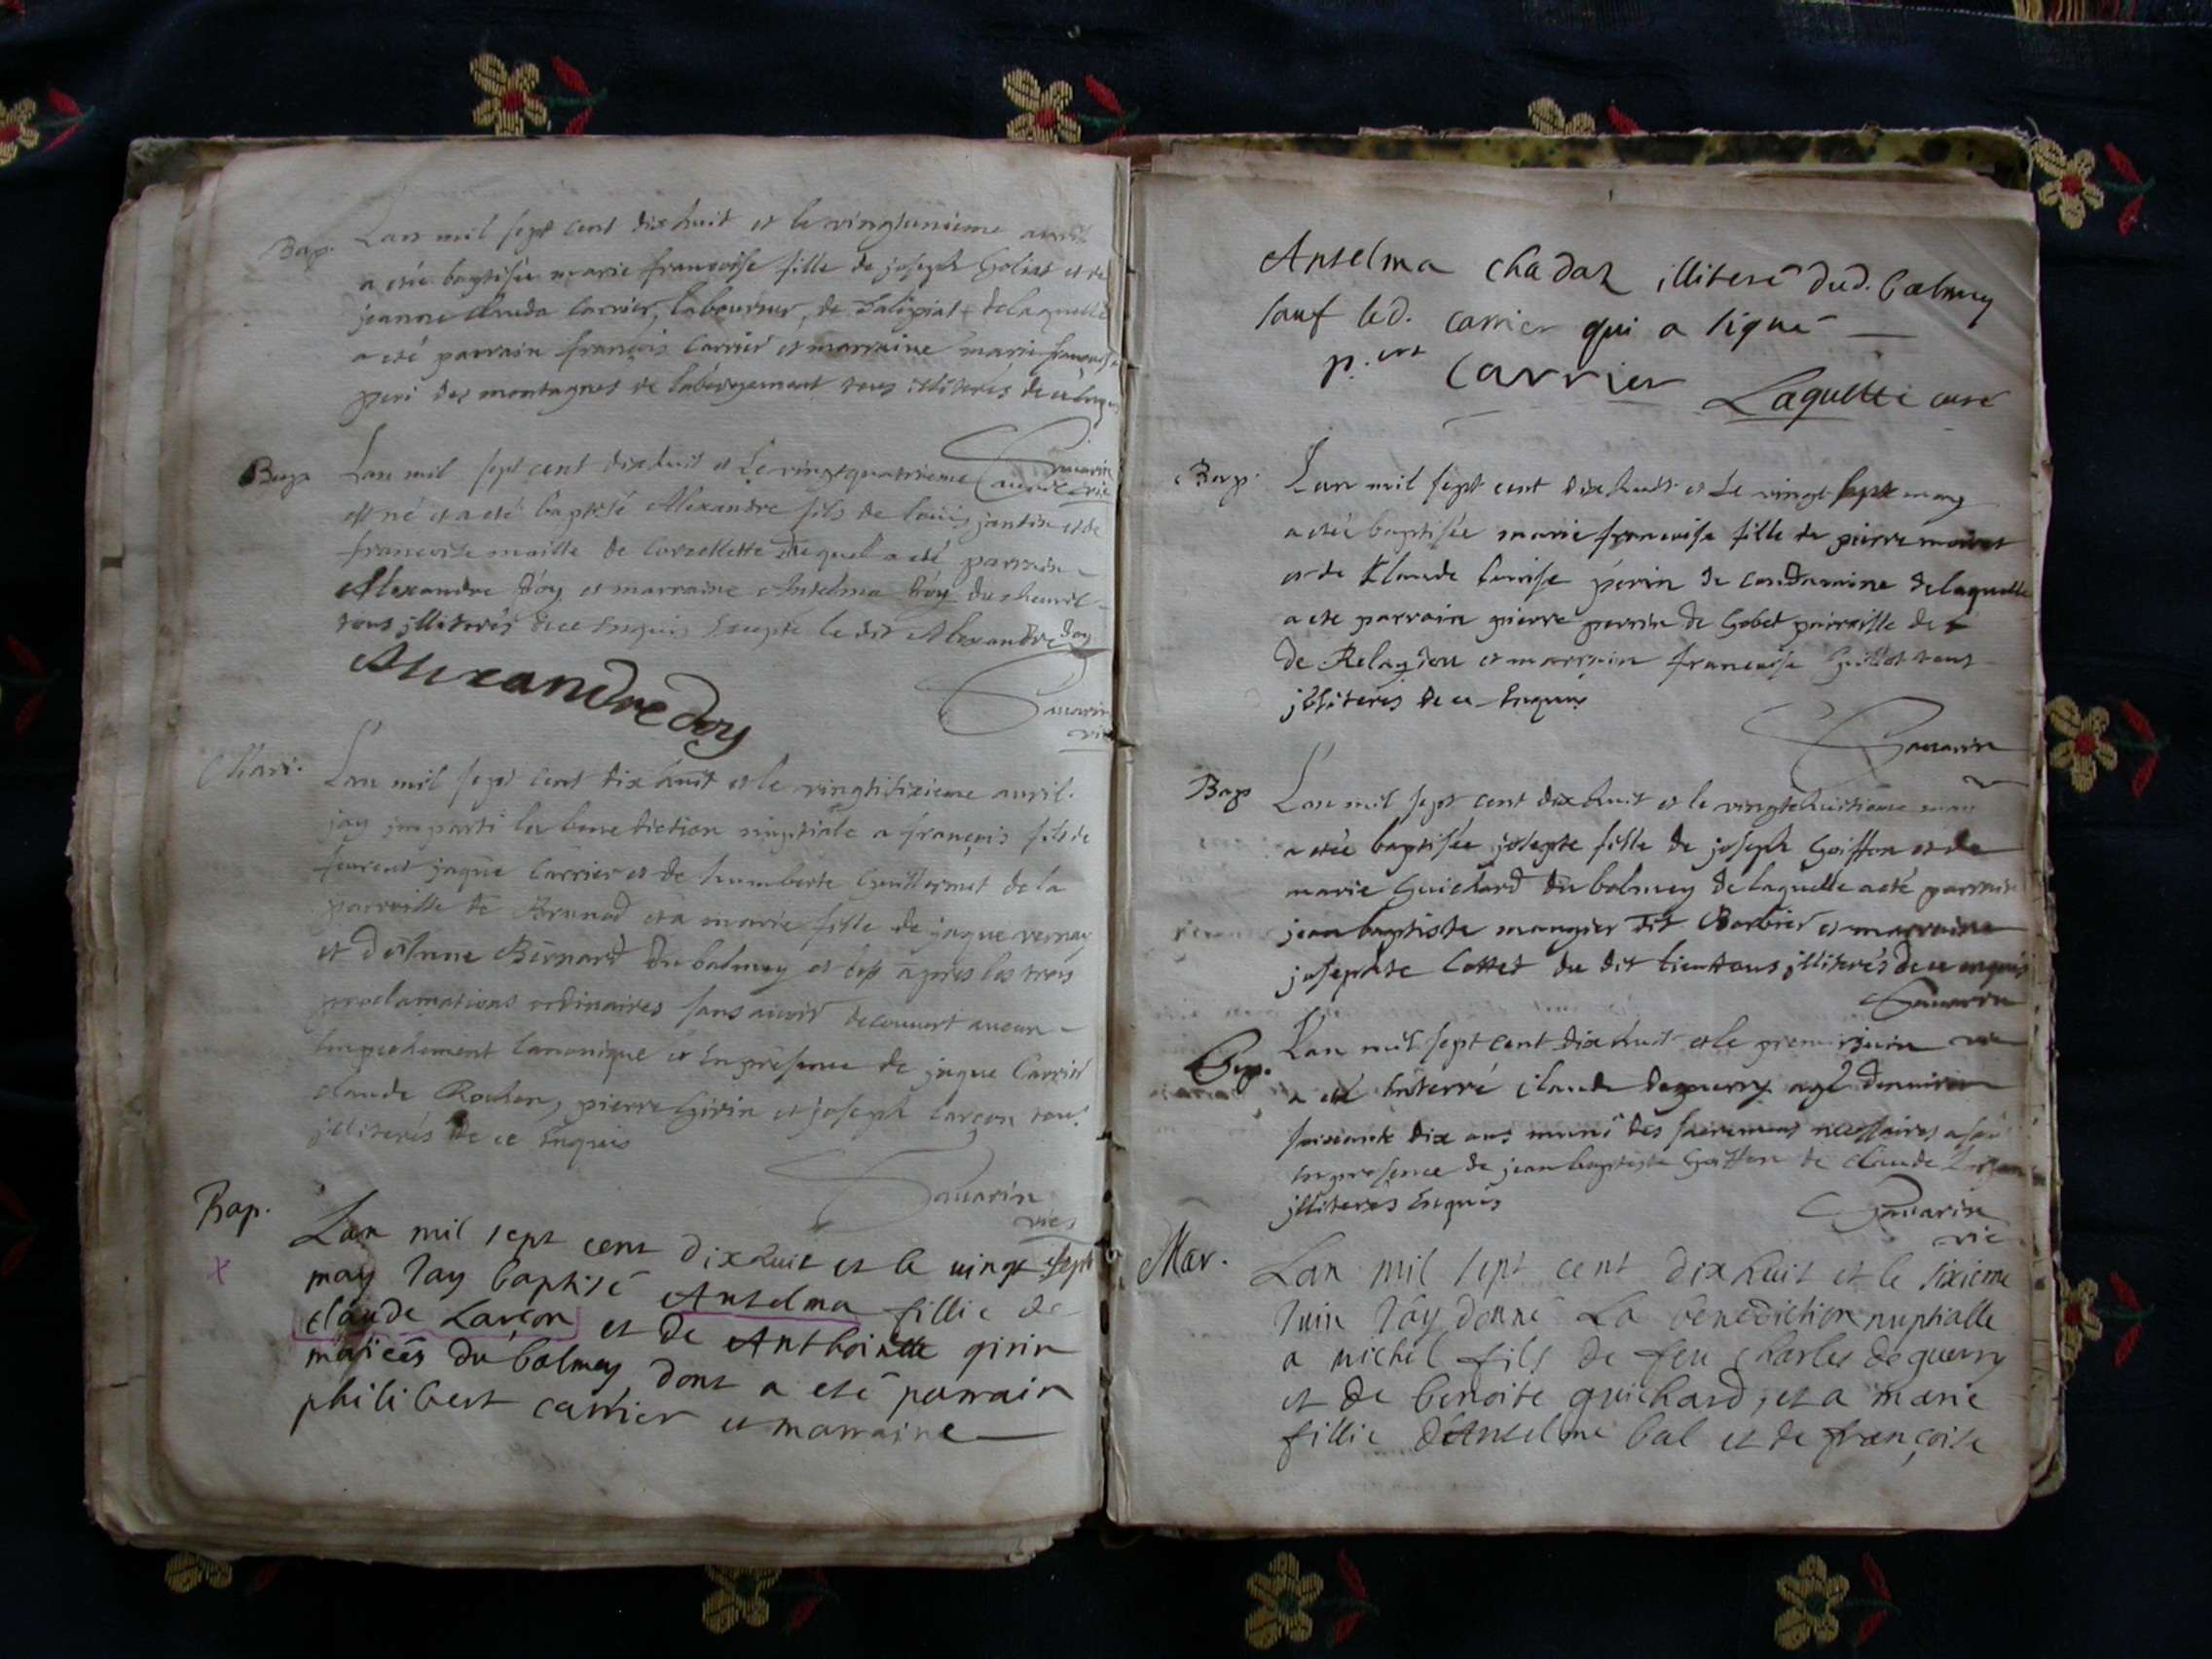 Bap. Lan mil sept cent dixhuit et le vingtunieme avril
a etée baptisée marie francoise fille de joseph et de
jeanne Carrier, laboureur, de delaquelle
a eté parrain françois Carrier et marraine marie francoise
des montagnes de tous illiterés de ce
Bap Lan mil sept cent dixhuit et le vingtquatrieme avril
Savarin vic
est né et a eté baptisé Alexandre fils de louis jantin et de
francoise maille de Corcellette duquel a eté parrain
Alexandre Doy et marraine Anselma Doy du
tous illiterés de ce Enquis Excepté le dit Alexandre Doy
Alexandre doy
Savarin
vic
Mari. Lan mil sept cent dixhuit et le vingtsixieme avril
jay imparti la benediction nuptiale a françois fils de
jaque Carrier et de humberte Guillermet de la
parroisse de Brenod et a marie fille de jaque vernay
et d'Anne Bernard du balmey et ce apres les trois
proclamations ordinaires sans avoir decouvert aucun
Empechement Canonique et En presence de jaque Carrier
claude Rochon, pierre Girin et joseph Larcon tous
illiterés de ce Enquis
Savarin
vic
Bap. Lan mil sept cent dixhuit et le vingt sept
may Jay baptisé Anselma fillie de
claude Larçon et de Anthoinette girin
mariées du balmey dont a eté parrain
philibert carrier et marraine
Anselma chadaz illiteré dud. balmey
sauf led. carrier qui a signé
p.ert carrier Laquette curé
Bap. Lan mil sept cent dixhuit et le vingt sept may
a etée baptisée marie francoise fille de pierre
et de Klaude louise perin de condamine delaquelle
a ete parrain pierre perrin de Gobet parroisse de
de Relagion et marrain francoise Guillot tous
illiterés de ce Enquis
Savarin
Bap Lan mil sept cent dixhuit et le vingthuitieme may
a etée baptisée josepte fille de joseph Goiffon et de
marie Guichard du balmey de laquelle a eté parrain
jean baptiste mangier dit Barbier et marraine
josephte Cottet du dit lieu tous illiterés de ce enquis
Savarin
vic
Sep. Lan mil sept cent dixhuit et le premier juin
a eté Enterré claude Deguerry agé denviron
soixante dix ans muni des sacremens necessaires
En presence de jean baptiste Goiffon de claude
illiterés Enquis
Savarin
vic
Mar. Lan mil sept cent dixhuit et le sixieme
Juin Jay donné La benediction nuptialle
a michel fils de feu charles deguerry
et de benoite guichard, et a marie
fillie d'Anselme bal et de françoise